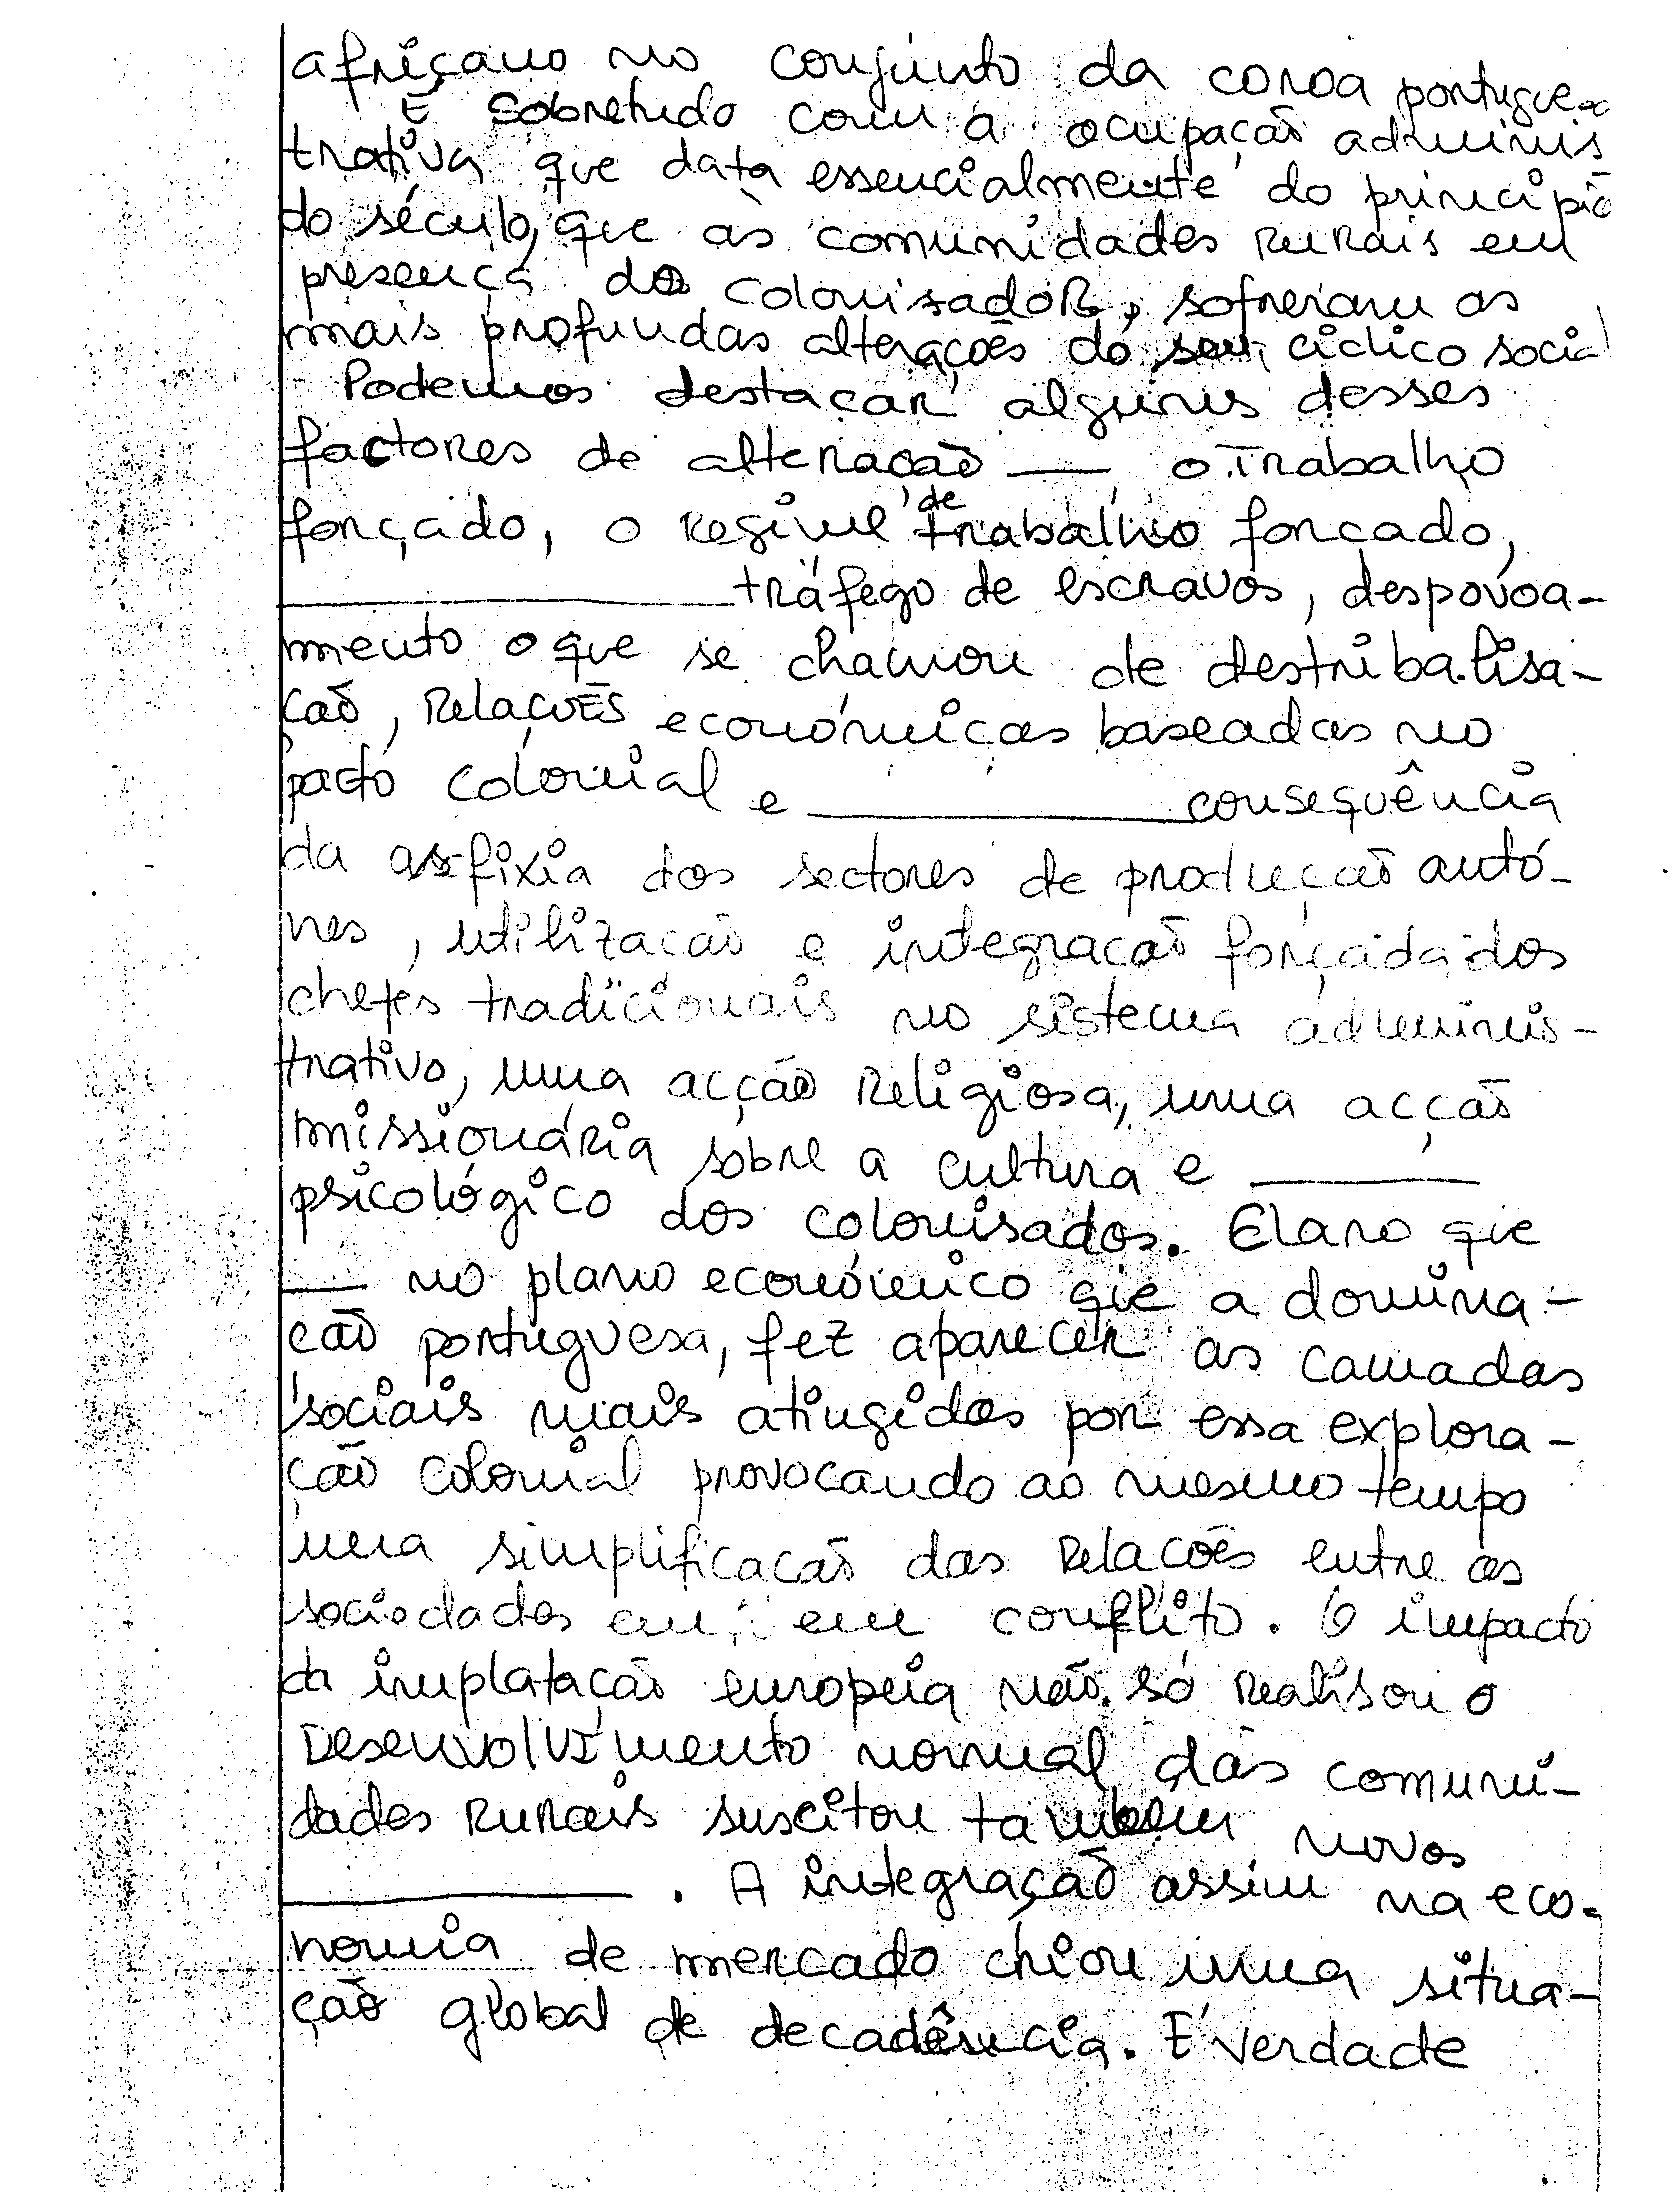 africano no conjunto da coroa portugue-
E sobretudo com a ocupação adminis
trativa que data essencialmente do principio
do século, que as comunidades rurais em
presença do colonisador, sofreram as
mais profundas alterações do seu ciclico social
Podemos destacar alguns desses
factores de alteração — o Trabalho
forçado, o regime de trabalho forçado,
____________ tráfego de escravos, despovoa-
mento o que se chamou de destribalisa-
ção, relações económicas baseadas no
pacto colonial e ____________ consequência
da asfixia dos sectores de produção autó-
nes, utilização e integração forçada dos
chefes tradicionais no sistema adminis-
trativo, uma acção religiosa, uma acção
missionária sobre a cultura e ______
psicológico dos colonisados. Claro que
__ no plano económico que a domina-
ção portuguesa, fez aparecer as camadas
sociais mais atingidas por essa explora-
ção colonial provocando ao mesmo tempo
uma simplificação das relações entre as
sociedades em em conflito. O impacto
da implatação europeia não só realisou o
Desenvolvimento normal das comuni-
dades rurais suscitou também novos
__________. A integração assim na eco-
nomia de mercado chiou uma situa-
ção global de decadência. É verdade